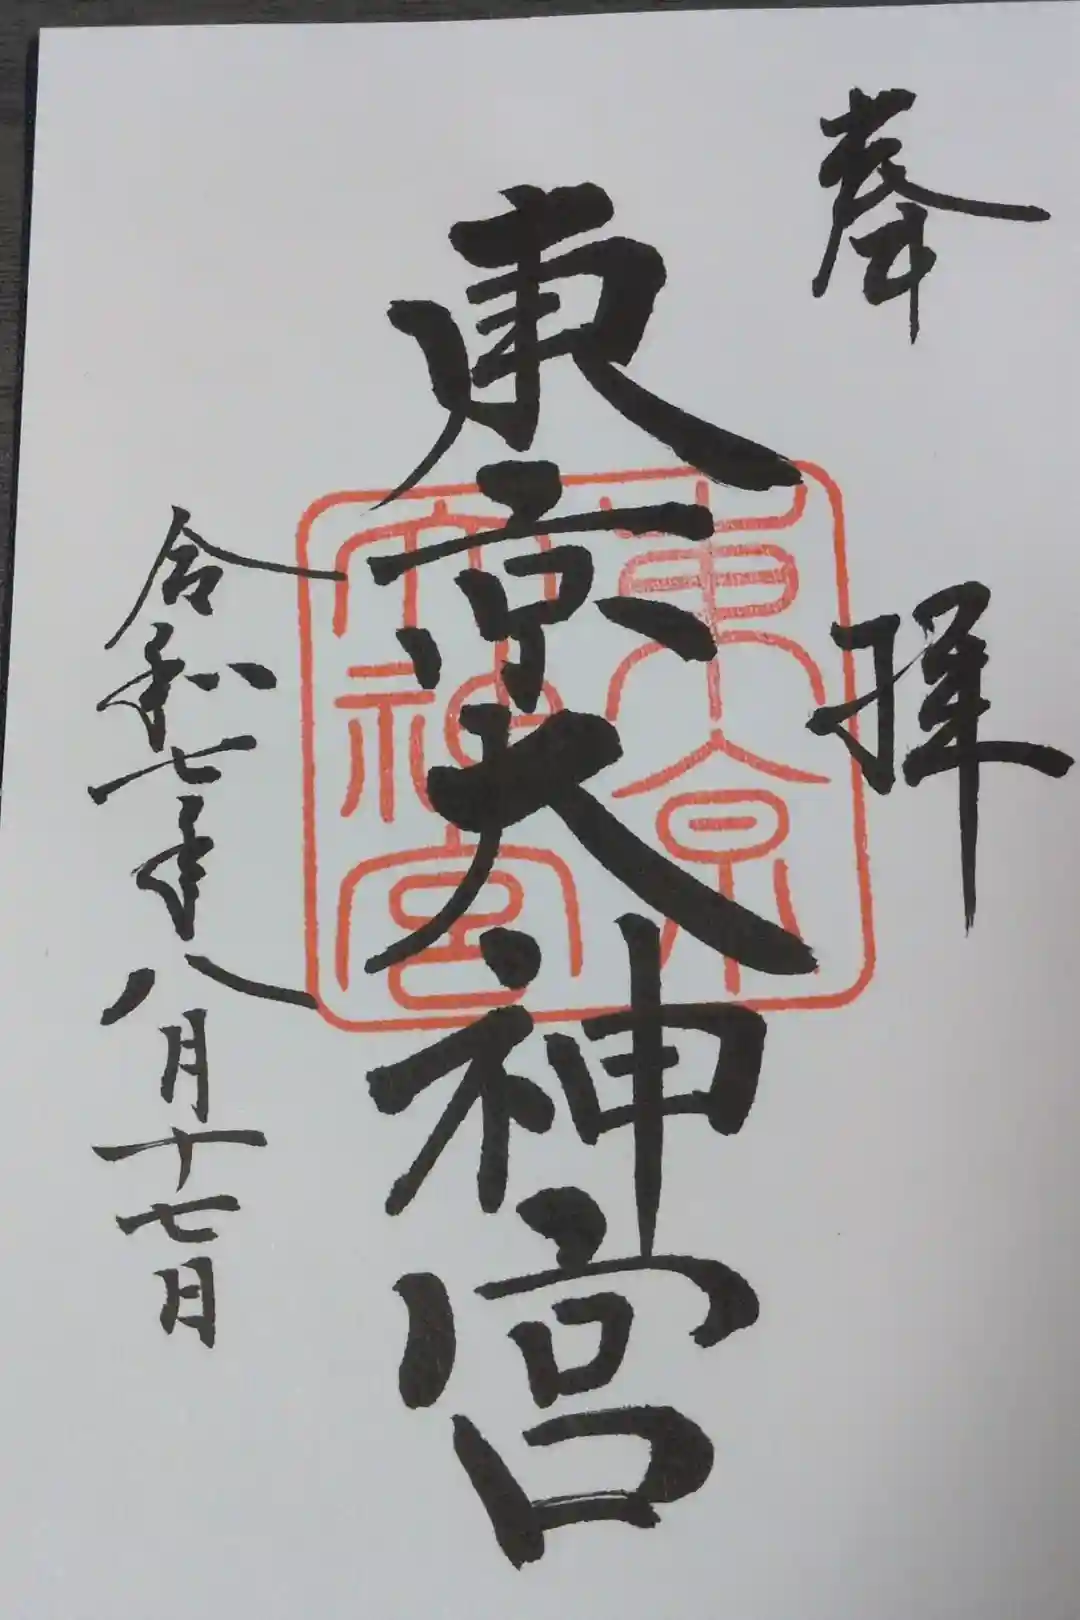 奉拝
東京大神宮
東京大神宮
令和七年八月十七日